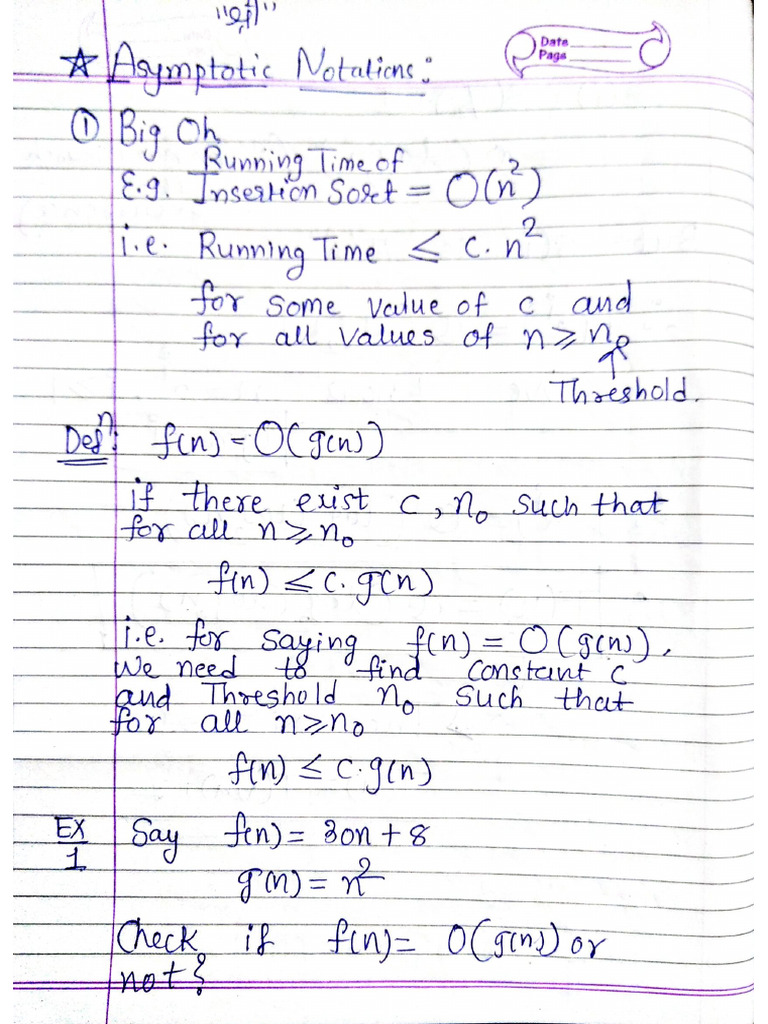 "श्री"
☆ Asymptotic Notations:
Date
Page
① Big Oh
Running Time of
E.g. Insertion Sort = O(n²)
i.e. Running Time ≤ c. n²
for some value of c and
for all values of n ≥ n₀
↑
Threshold.
Defⁿ: f(n) = O(g(n))
if there exist c, n₀ such that
for all n ≥ n₀
f(n) ≤ c. g(n)
i.e. for saying f(n) = O(g(n)),
We need to find constant c
and Threshold n₀ such that
for all n ≥ n₀
f(n) ≤ c. g(n)
EX 1 Say f(n) = 30n + 8
g(n) = n²
Check if f(n) = O(g(n)) or
not?